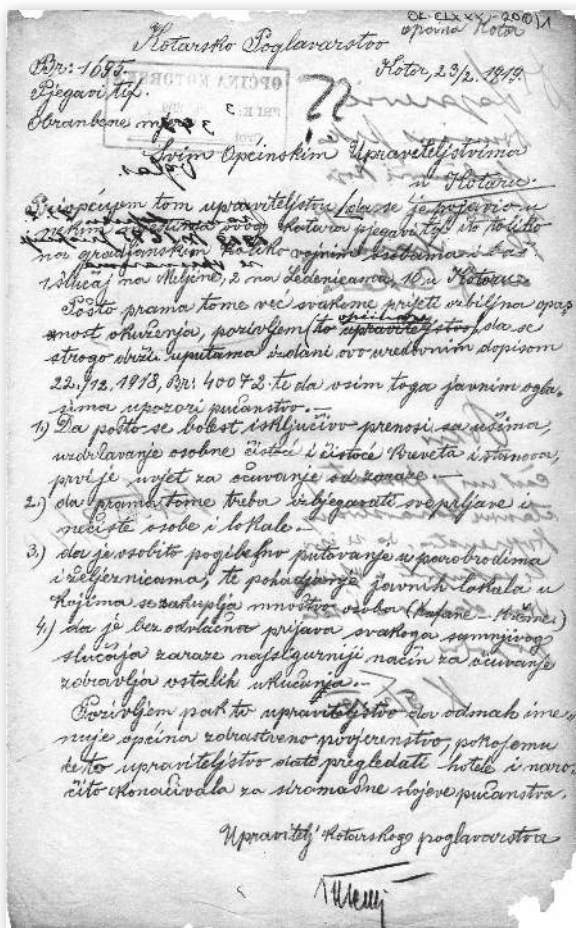 OK-CLXXX-200/1
općina Kotor
Kotarsko Poglavarstvo
Br: 1695. Kotor, 23/2. 1919.
Pjegavi tif.
Obranbene mjere
OPĆINA KOTORSKA
Svim Općinskim Upraviteljstvima
u Kotaru.
Priopćujem tom upraviteljstvu da se je pojavio u
nekim mjestima ovog Kotara pjegavi tif i to toliko
na gradjanskim koliko vojnim osobama i baš
1 slučaj na Meljine, 2 na Ledenicama, 10 u Kotoru.
Pošto prama tome već svakome prijeti ozbiljna opas
nost okuženja, pozivljem to općinsko upraviteljstvo, da se
strogo drži uputama izdani ovo uredovnim dopisom
22./12. 1918, Br: 40072 te da osim toga javnim ogla-
sima upozori pučanstvo. —
1.) Da pošto se bolest isključivo prenosi sa ušima,
uzdržavanje osobne čistoće i čistoće Kreveta i stanova,
prvi je uvjet za očuvanje od zaraze —
2.) da prama tome treba izbjegavati sve prljave i
nečiste osobe i lokale. —
3.) da je osobito pogibeljno putovanje u parobrodima
i željeznicama, te pohadjanje javnih lokala u
Kojima se zakuplja mnoštvo osoba (Kafane —
4.) da je bez odvlačna prijava svakoga sumnjivog
slučaja zaraze najsigurniji način za očuvanje
zdravlja ostalih ukućanja. —
Pozivljem pak to upraviteljstvo da odmah ime-
nuje općina zdrastveno povjerenstvo, po kojemu
će to upraviteljstvo dati pregledati hotele i naro-
čito konačivala za siromašne slojeve pučanstva.
Upravitelj Kotarskog poglavarstva